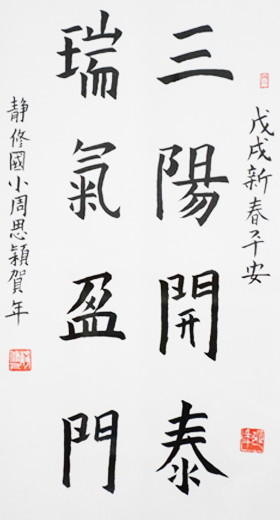 戊戌新春平安
三陽開泰
瑞氣盈門
靜修國小周思穎賀年